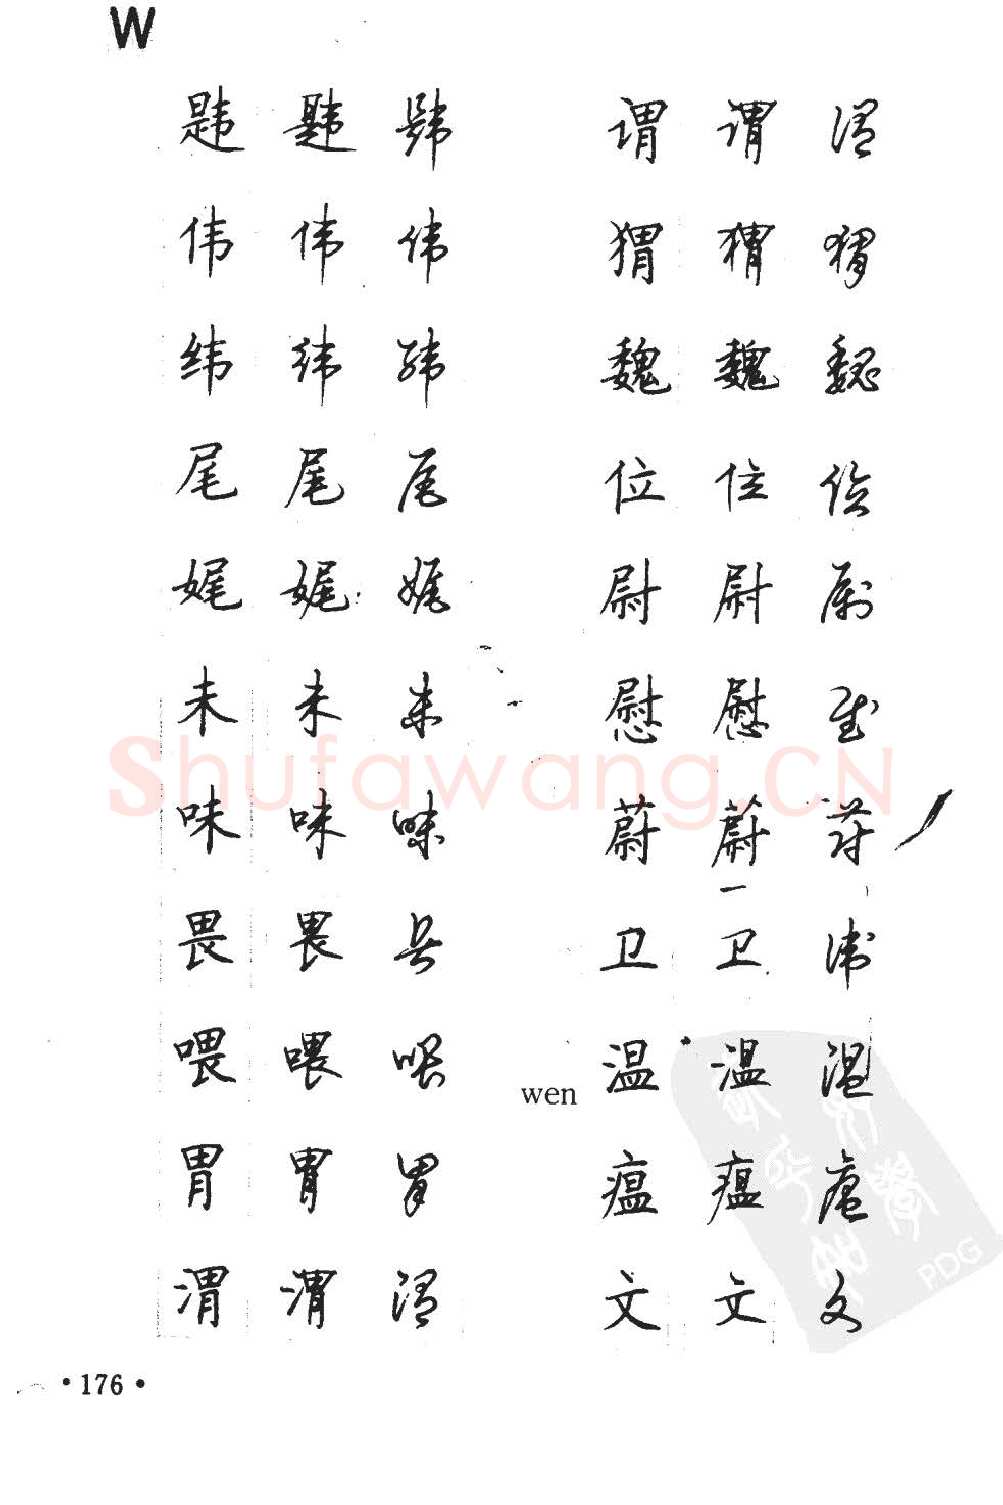 W
韪 韪 韪 谓 谓 谓
伟 伟 伟 猬 猬 猬
纬 纬 纬 魏 魏 魏
尾 尾 尾 位 位 位
娓 娓 娓 尉 尉 尉
未 未 未 慰 慰 慰
Shufawang.CN
味 味 味 蔚 蔚 蔚
畏 畏 畏 卫 卫 衛
喂 喂 喂 wen 温 温 温
胃 胃 胃 瘟 瘟 瘟
渭 渭 渭 文 文 文
PDG
·176·